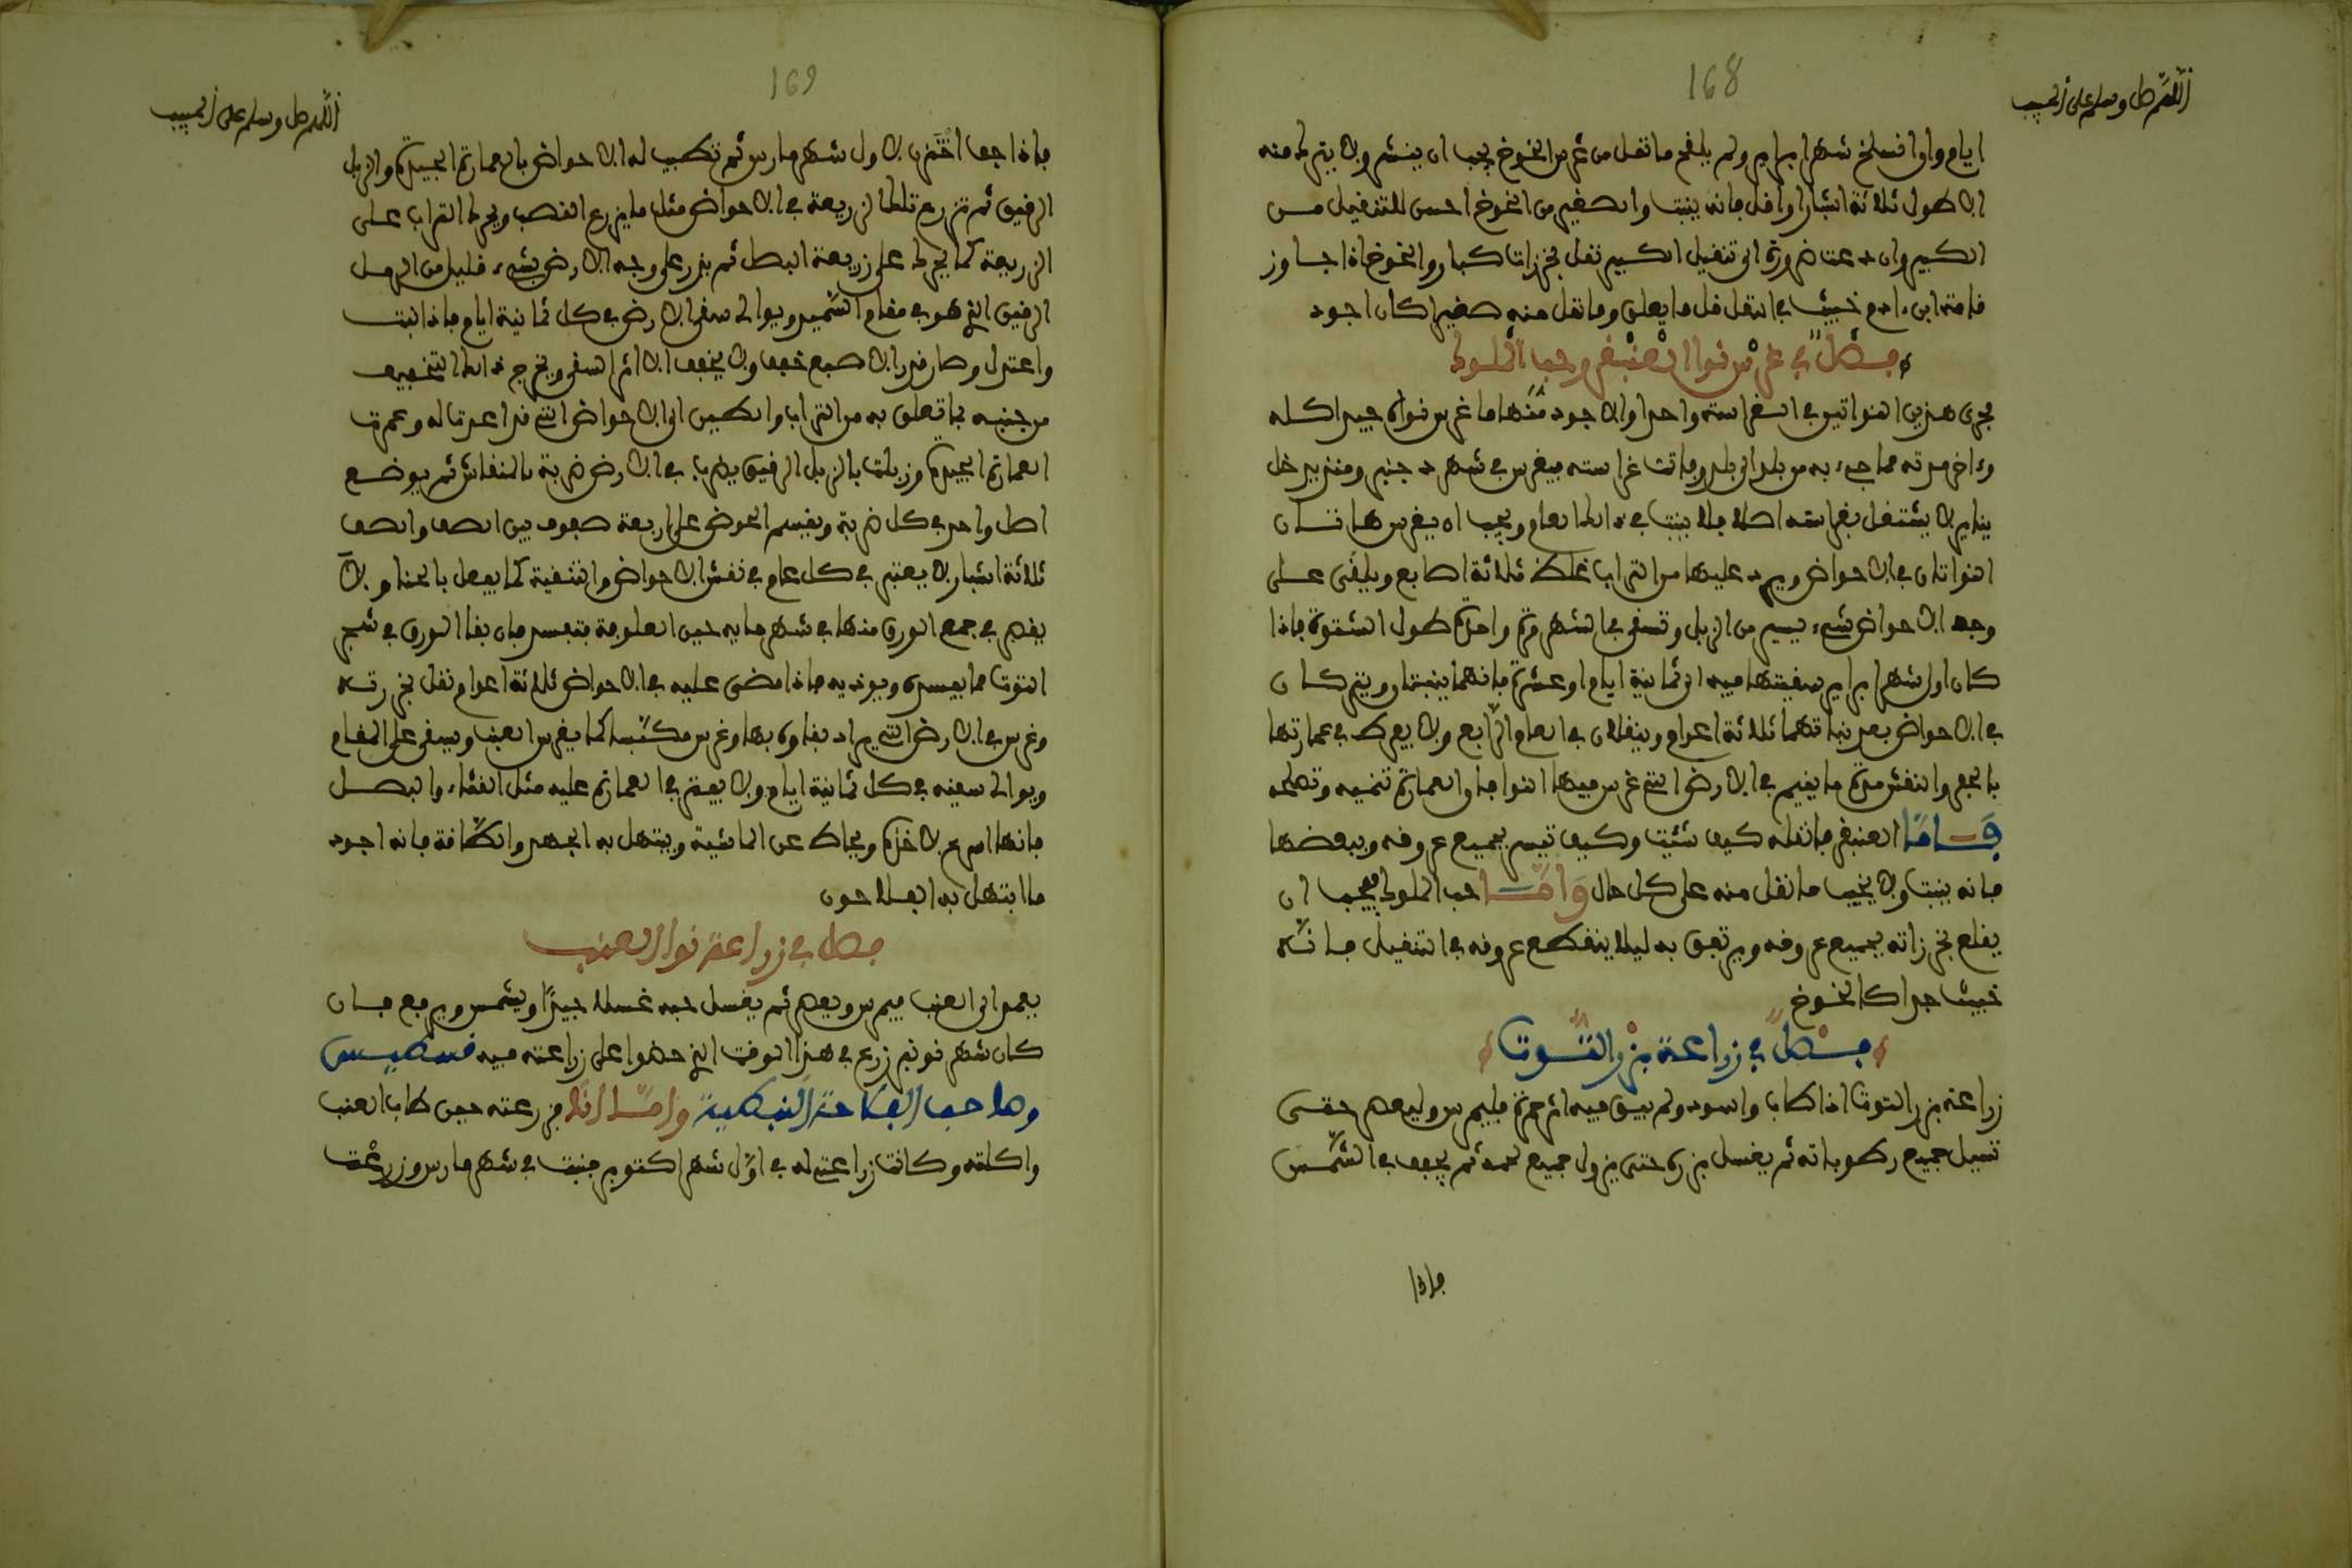 168
اللهم صل وسلم على الحبيب
ايام واذا انسلخ شهر ابرير ولم يلقح ما نقل من غرس الخوخ يجب ان ينشر ولا يترك منه
الا طول ثلاثة اشبار او اقل فانه ينبت والصغير من الخوخ احسن للتنقيل مــن
الكبير وان دعت ضرورة الى تنقيل الكبير نقل بخرزات كبار والخوخ اذا جــاوز
قامة ابن ءادم خبيث في النقل قل ما يعلق وما نقل منه صغيرا كان اجود
فصل في غرس نوا العنبقر وحب الملوك
مجرى هذين النواتين في الغراسة واحد والاجود منهما ما غرس نواه حين اكله
وءاخر مدته مما جيء به من بلد الى بلد وفاتت غراسته فيغرس في شهر دجنبر ومن
يناير لا يشتغل بغراسته اصلا فلا ينبت في ذلك العام ويجب ان يغرس هاتــان
النواتان في الاحواض ويرد عليها من التراب غلظ ثلاثة اصابع ويلقى عــلى
وجه الاحواض شيء يسير من الزبل وتسقى في الشهر مرة واحدة طول الشتوة فاذا
كان اول شهر ابرير سقيتها فيه الى ثمانية ايام او عشرة فانهما ينبتان ويتركــان
في الاحواض بعد نباتهما ثلاثة اعوام وينقلان في العام الرابع ولا يفرط في عمارتها
بالحفر والنقش مدة ما يقيم في الارض التي غرس فيها النوا فان العمارة تنميه وتصلحه
فــامّا العنبقر فانقله كيف شئت وكيف تيسر بجميع عروقه وببعضها
فانه ينبت ولا يخيب ما نقل منه على كل حال وامّــا حب الملوك فيجب ان
يقلع بخرزاته بجميع عروقه ويرتفق به ليلا ينقطع عروقه في التنقيل فــانــه
خبيث جدا كالخوخ
فــصل في زراعة بزر التــوت
زراعة بزر التوت اذا طاب واسود ولم يبق فيه اثر حمرة فليمرس وليعصر حتــى
تسيل جميع رطوباته ثم يغسل بزره حتى يزول جميع لحمه ثم يجفف في الشمــس
فاذا
169
اللهم صل وسلم على الحبيب
فاذا جف اختزن لاول شهر مارس ثم تطيب له الاحواض بالعمارة الجيدة والزبل
الرقيق ثم تزرع تلك الزريعة في الاحواض مثل ما يزرع القصب ويحرك التراب عــلى
الزريعة كما يحرك على زريعة البصل ثم يذر على وجه الارض بشيء قليل من الرمــل
الرقيق الذي هو في مقام السميد ويوالى سقي الارض في كل ثمانية ايام فاذا انبت
واعتدل وصار قدر الاصبع خفف ولا يخفف الا اثر السقي ويخرج ذلك التخفيف
من جنبه بما تعلق به من التراب والطين الى الاحواض التي قد اعدت له وعمرت
العمارة الجيدة وزبلت بالزبل الرقيق يضرب في الارض ضربة بالمنقاش ثم يوضــع
اصل واحد في كل ضربة ويقسم الحوض على اربعة صفوف بين الصف والصف
ثلاثة اشبار لا يعتبر في كل عام في نقش الاحواض والتنقية كما يفعل بالحنا ولا
يقصر في جمع الورق منها في شهر مايه حين العلومة بتفسد فان بقا الورق في شجر
التوت مما يفسده ويوذيه فاذا مضى عليه في الاحواض ثلاثة اعوام نقل بخرزتــه
وغرس في الارض التي يراد بقاوه بها وغرس مكتبسا كما يغرس العنب ويسقى على المقام
ويوالى سقيه في كل ثمانية ايام ولا يفتر في العمارة عليه مثل القثاء والبصــل
فانها اسرع لاخذه ويحاط عن الماشية ويتهل به الجهد والطافة فانه اجود
ما ابتهل به الفلاحون
فصل في زراعة نوا العنب
يعمد الى العنب فيمرس ويعصر ثم يغسل حبه غسلا جيدًا ويشمس ويرفع فــان
كان شهر نونبر زرع في هذا الوقت الذي حضوا على زراعته فيه قسطــيس
وصاحب الفلاحة النبطية وامّــا انا فزرعته حين طاب العنب
واكلته وكانت زراعتي له في اوّل شهر اكتوبر فنبت في شهر مارس وزرعت